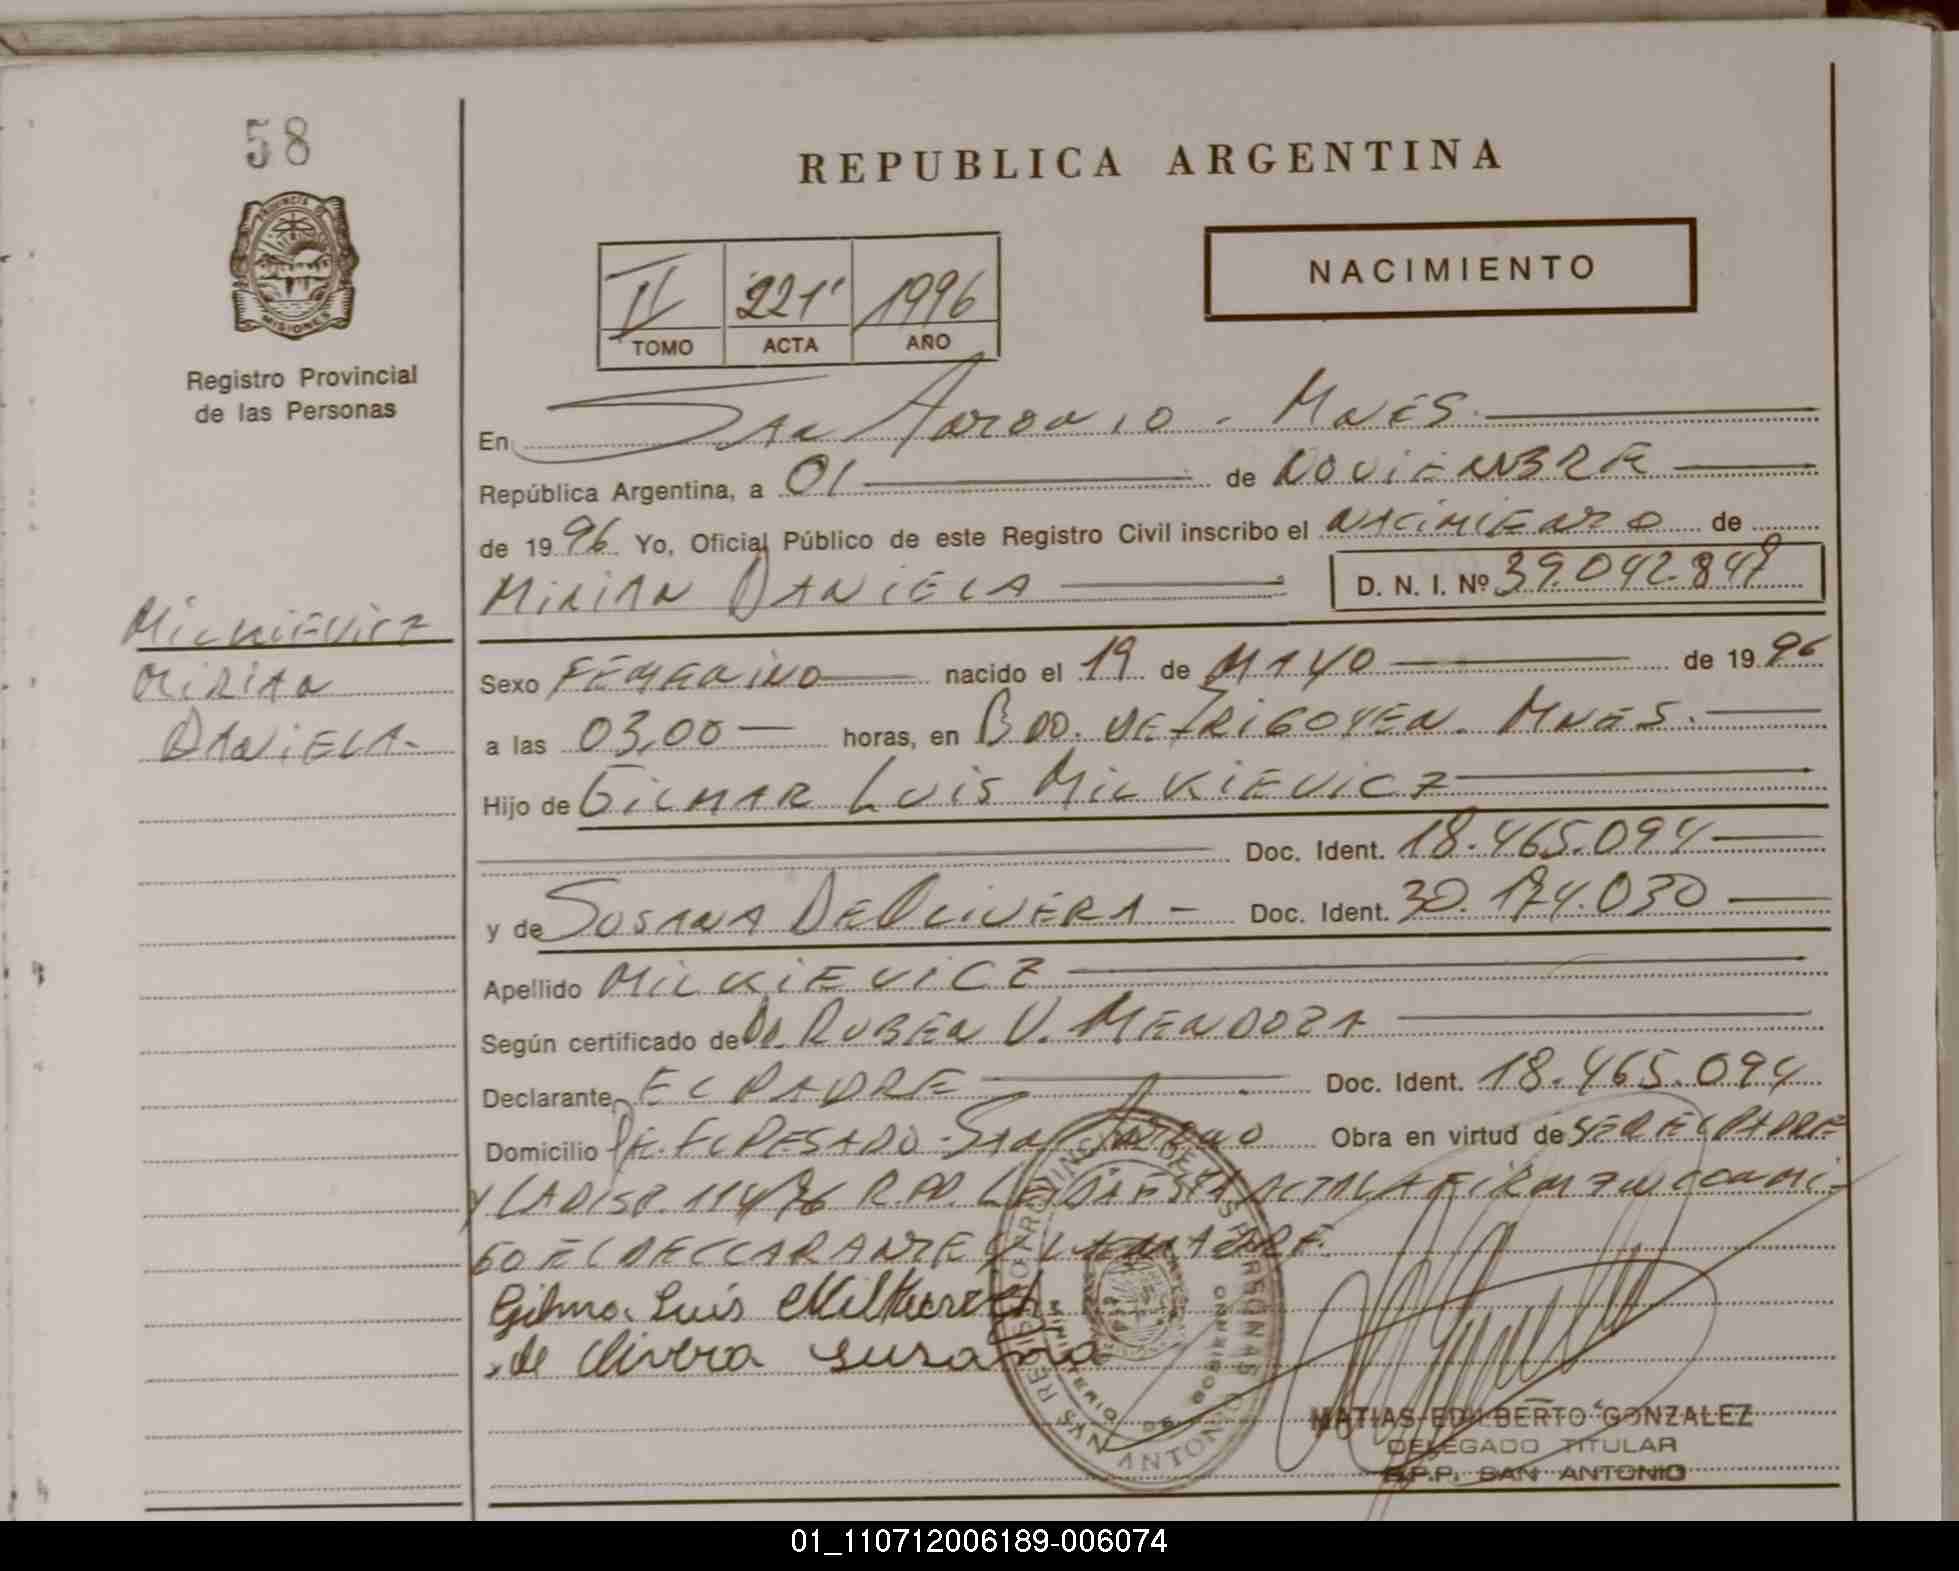 58
REPUBLICA ARGENTINA
PROVINCIA DE
MISIONES
Registro Provincial
de las Personas
II 221 1996
TOMO ACTA AÑO
NACIMIENTO
En San Antonio - Mnes.
República Argentina, a 01 de Noviembre
de 1996 Yo, Oficial Público de este Registro Civil inscribo el nacimiento de
Mirian Daniela D. N. I. Nº 39.042.848
Milkievicz
Mirian
Daniela-
Sexo Femenino nacido el 19 de Mayo de 1996
a las 03,00 horas, en Bdo. de Irigoyen. Mnes.
Hijo de Gilmar Luis Milkievicz
Doc. Ident. 18.465.094
y de Sosana De Olivera - Doc. Ident. 30.174.030
Apellido Milkievicz
Según certificado de Dr. Ruben V. Mendoza
Declarante El Padre Doc. Ident. 18.465.094
Domicilio Pje. El Pesado - San Antonio Obra en virtud de ser el padre
y la Disp. 114/96 R.P.P. Leída esta acta la firman conmi-
go el declarante y la madre.
Gilmo. Luis Milkievicz
de Olivera Susana
MATIAS EDILBERTO GONZALEZ
DELEGADO TITULAR
R.P.P. SAN ANTONIO
MINISTERIO DE GOBIERNO
01_110712006189-006074